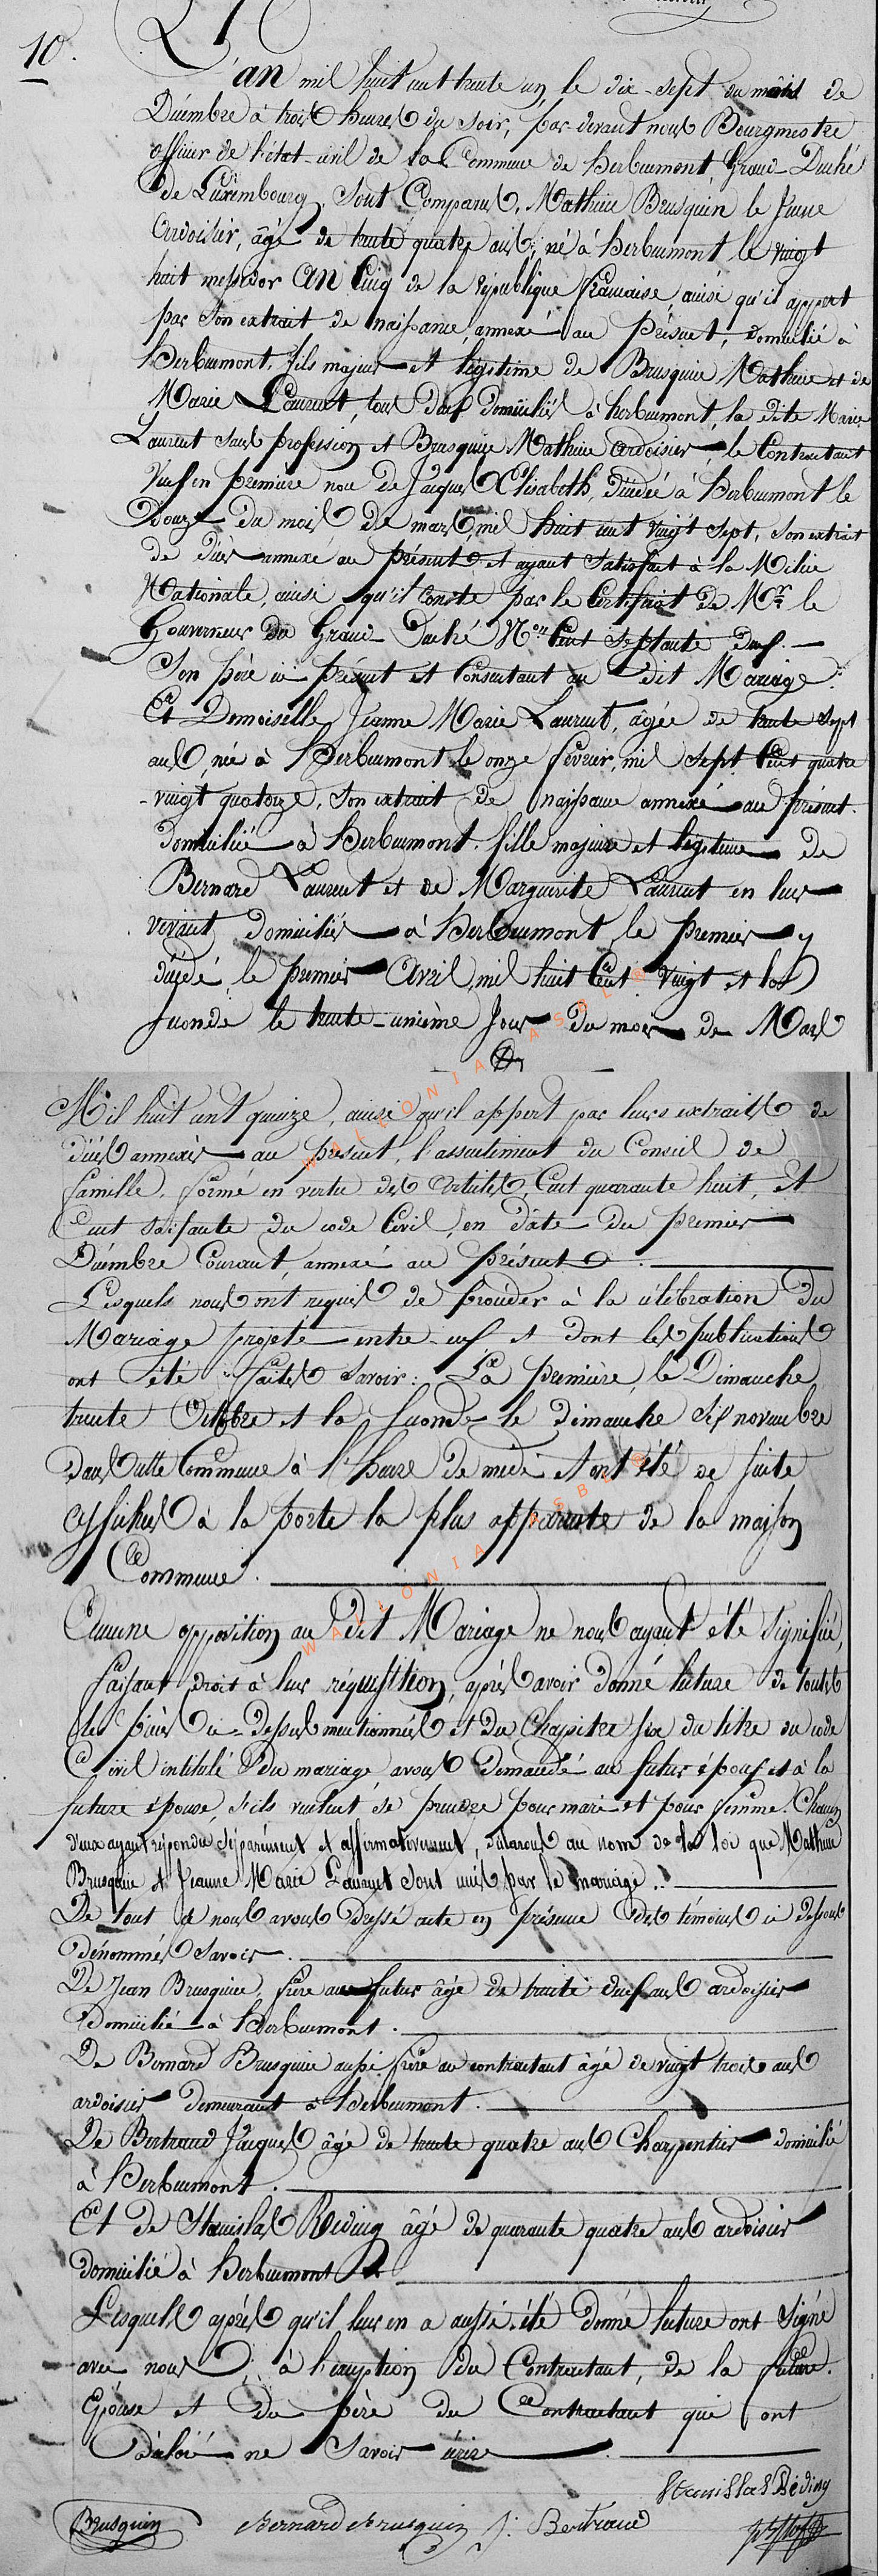 10.
L'an mil huit cent trente un, le dix-sept du mois de
Décembre à trois heures du soir, par-devant nous Bourgmestre
officier de l'état-civil de la Commune de herbeumont Grand-Duché
de Luxembourg, Sont Comparus, Mathieu Brusquin le Jeune
Ardoisier, âgé de trente quatre ans, né à herbeumont, le vingt
huit messidor an Cinq de la république française ainsi qu'il appert
par Son extrait de naissance, annexé au Présent, domicilié à
herbeumont, fils majeur et légitime de Brusquin Mathieu et de
Marie Laurent, tous deux Domiciliés à herbeumont, la dite Marie
Laurent sans profession et Brusquin Mathieu ardoisier, le Contractant
Veuf en premiere noce de Jacques Elisabeth, Décédée à herbeumont le
Douze du mois de mars, mil huit cent vingt sept, son extrait
de Décès annexe au présent et ayant Satisfait à la Milice
Nationale, ainsi qu'il Conste par le Certificat de Mr le
Gouverneur du Grand-Duché Nos Cent Septante deux.
Son père ici présent et Consentant au dit Mariage.
Et Demoiselle Jeanne Marie Laurent, âgée de trente sept
ans, née à herbeumont le onze février, mil sept Cent quatre
-vingt quatorze, Son extrait de naissance annexé au présent.
domiciliée à herbeumont fille majeure et légitime de
Bernard Laurent et de Marguerite Laurent en leur
vivant domiciliés à herbeumont, le premier y
décédé le premier Avril, mil huit Cent Vingt et la
seconde le trente-unième Jour du mois de Mars
Mil huit cent quinze, ainsi qu'il appert par leurs extraits de
décès annexés au présent, l'assentiment du Conseil de
famille, formé en vertu des Articles, Cent quarante huit, et
Cent Soixante du code Civil, en date du premier
Décembre Courant, annexé au présent.
Lesquels nous ont requis de procéder à la célébration du
Mariage projeté entre eux et dont les publications
ont été faites Savoir : La première, le Dimanche
trente Octobre et la seconde le dimanche Six novembre
dans cette Commune à l'heure de midi et ont été de suite
affichés à la porte la plus apparente de la maison
Commune.
Aucune opposition au dit Mariage ne nous ayant été Signifiée,
faisant droit à leur réquisition, après avoir donné lecture de toutes
les pièces ci-dessus mentionnées et du Chapitre six du titre du code
Civil intitulé du mariage avons demandé au futur époux et à la
future épouse, s'ils veulent se prendre pour mari et pour femme. Chacun
d'eux ayant répondu séparément et affirmativement, déclarons au nom de la loi que Mathieu
Brusquin et Jeanne Marie Laurent sont unis par le mariage.
De tout ce nous avons dressé acte en présence des témoins ci dessous
dénommés Savoir.
De Jean Brusquin, frère au futur âgé de trente deux ans ardoisier
Domicilié à herbeumont.
De Bernard Brusquin aussi frère au contractant âgé de vingt trois ans
ardoisier demeurant à herbeumont.
De Bertrand Jacques âgé de trente quatre ans Charpentier domicilié
à herbeumont.
Et de Stanislas Réding âgé de quarante quatre ans ardoisier
domicilié à herbeumont
Lesquels après qu'il leur en a aussi été donné lecture ont Signé
avec nous à l'exception du Contractant, de la future
Epouse et du père du Contractant qui ont
déclaré ne Savoir écrire.
Stanislas Réding
Brusquin Bernard Brusquin J: Bertrand
WALLONIA ASBL ©
WALLONIA ASBL ©